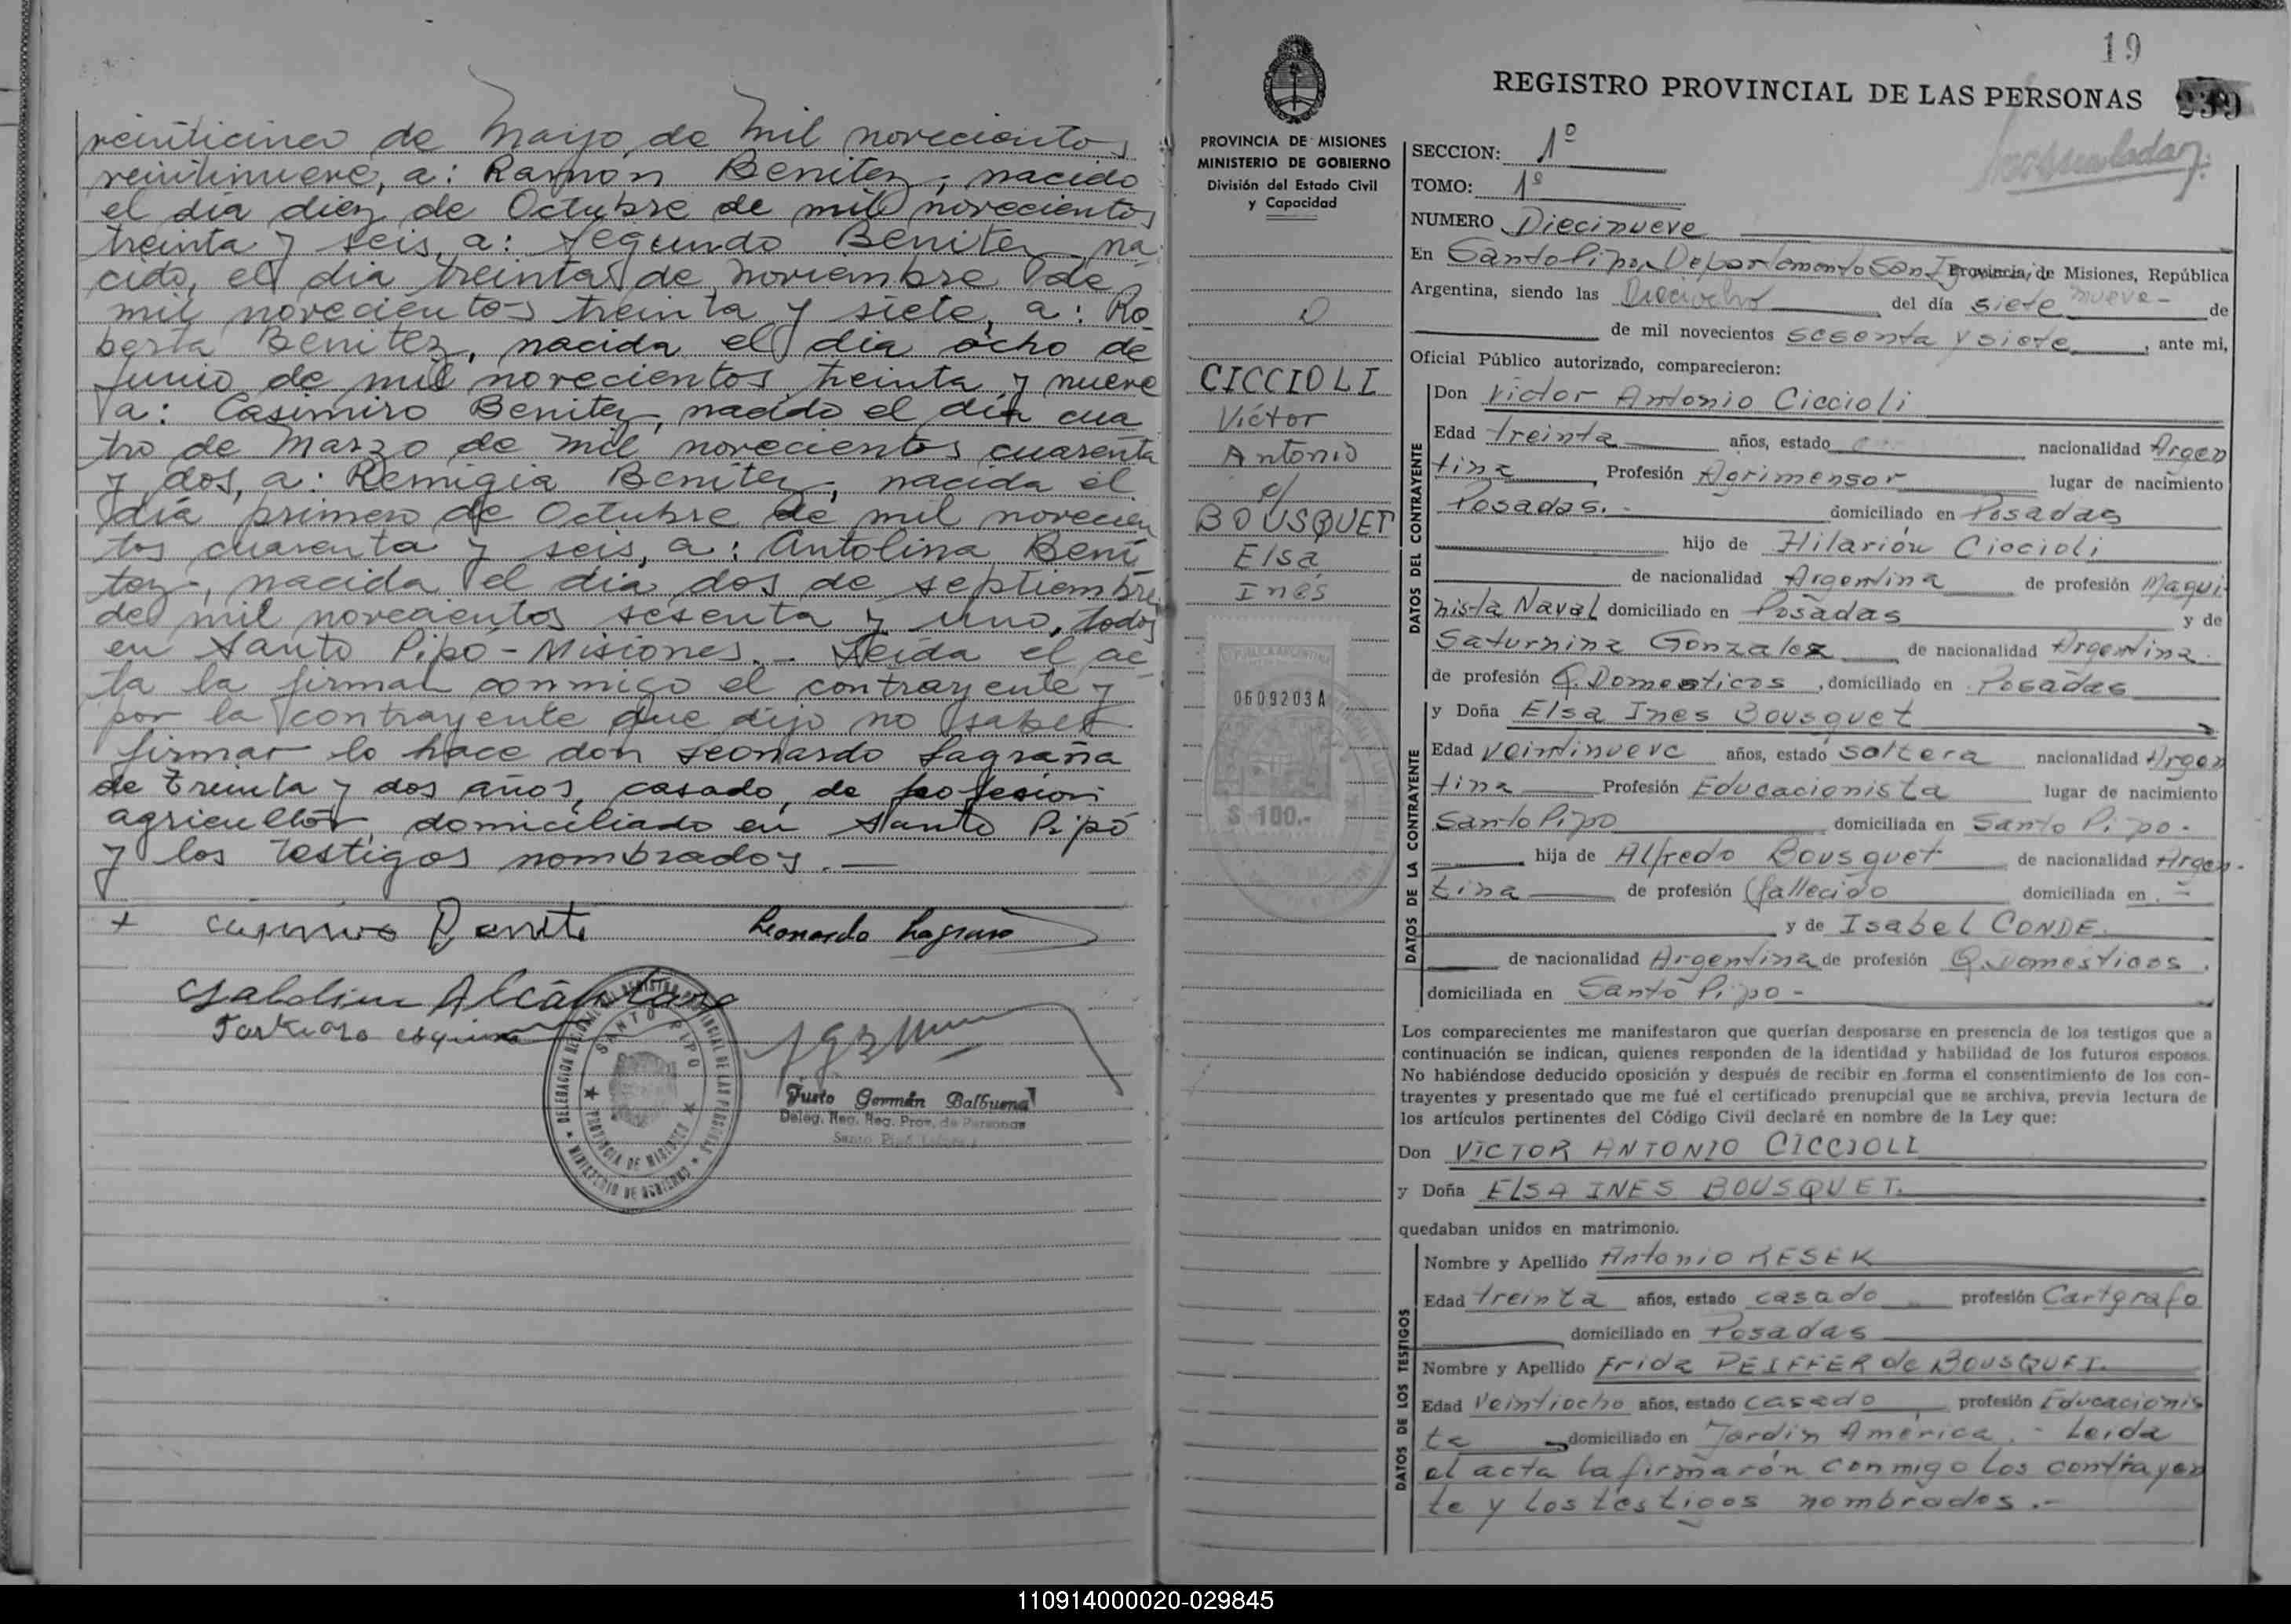 veinticinco de Mayo de mil novecientos
veintinueve, a: Ramón Benitez, nacido
el día diez de Octubre de mil novecientos
treinta y seis, a: Segundo Benitez na
cido, el día treinta de noviembre de
mil novecientos treinta y siete, a: Ro
berta Benitez, nacida el día ocho de
Junio de mil novecientos treinta y nueve
a: Casimiro Benitez, nacido el día cua
tro de Marzo de mil novecientos cuarenta
y dos, a: Remigia Benitez, nacida el
día primero de Octubre de mil novecien
tos cuarenta y seis, a: Antolina Beni
tez, nacida el día dos de septiembre
de mil novecientos sesenta y uno, todos
en Santo Pipó - Misiones.- Leída el ac
ta la firman conmigo el contrayente y
por la contrayente que dijo no saber
firmar lo hace don Leonardo Lagraña
de treinta y dos años, casado, de profesión
agricultor, domiciliado en Santo Pipó
y los testigos nombrados.-
+ Leonardo Lagraña
Alcántara
DELEGACION REGIONAL DEL REGISTRO PROVINCIAL DE LAS PERSONAS
SANTO PIPO
PROVINCIA DE MISIONES
MINISTERIO DE GOBIERNO
Justo Germán Balbuena
Deleg. Reg. Reg. Prov. de Personas
Santo Pipó
19
REGISTRO PROVINCIAL DE LAS PERSONAS
239
PROVINCIA DE MISIONES
MINISTERIO DE GOBIERNO
División del Estado Civil
y Capacidad
CICCIOLI
Víctor
Antonio
c/
BOUSQUET
Elsa
Inés
REPUBLICA ARGENTINA
0609203A
$ 100.-
SECCION: 1º
TOMO: 1º
NUMERO Diecinueve
En Santo Pipo, Departamento San I Provincia de Misiones, República
Argentina, siendo las Dieciocho del día siete nueve- de
de mil novecientos sesenta y siete, ante mi,
Oficial Público autorizado, comparecieron:
DATOS DEL CONTRAYENTE
Don Victor Antonio Ciccioli
Edad treinta años, estado nacionalidad Argen
tina, Profesión Agrimensor lugar de nacimiento
Posadas.- domiciliado en Posadas
hijo de Hilarión Ciccioli
de nacionalidad Argentina de profesión Maqui-
nista Naval domiciliado en Posadas y de
Saturnina Gonzalez de nacionalidad Argentina
de profesión Q. Domesticos, domiciliado en Posadas
DATOS DE LA CONTRAYENTE
y Doña Elsa Ines Bousquet
Edad veintinueve años, estado soltera nacionalidad Argen
tina Profesión Educacionista lugar de nacimiento
Santo Pipo domiciliada en Santo Pipo-
hija de Alfredo Bousquet de nacionalidad Argen-
tina de profesión (fallecido domiciliada en -
y de Isabel CONDE.
de nacionalidad Argentina de profesión Q. Domesticos,
domiciliada en Santo Pipo-
Los comparecientes me manifestaron que querían desposarse en presencia de los testigos que a
continuación se indican, quienes responden de la identidad y habilidad de los futuros esposos.
No habiéndose deducido oposición y después de recibir en forma el consentimiento de los con-
trayentes y presentado que me fué el certificado prenupcial que se archiva, previa lectura de
los artículos pertinentes del Código Civil declaré en nombre de la Ley que:
Don VICTOR ANTONIO CICCIOLI
y Doña ELSA INES BOUSQUET.
quedaban unidos en matrimonio.
DATOS DE LOS TESTIGOS
Nombre y Apellido Antonio RESEK
Edad treinta años, estado casado profesión Cartgrafo
domiciliado en Posadas
Nombre y Apellido Frida PEIFFER de BOUSQUET.
Edad Veintiocho años, estado casado profesión Educacionis
ta domiciliado en Jardin America.- Leida
el acta la firmarón conmigo los contrayen
te y los testigos nombrados.-
110914000020-029845